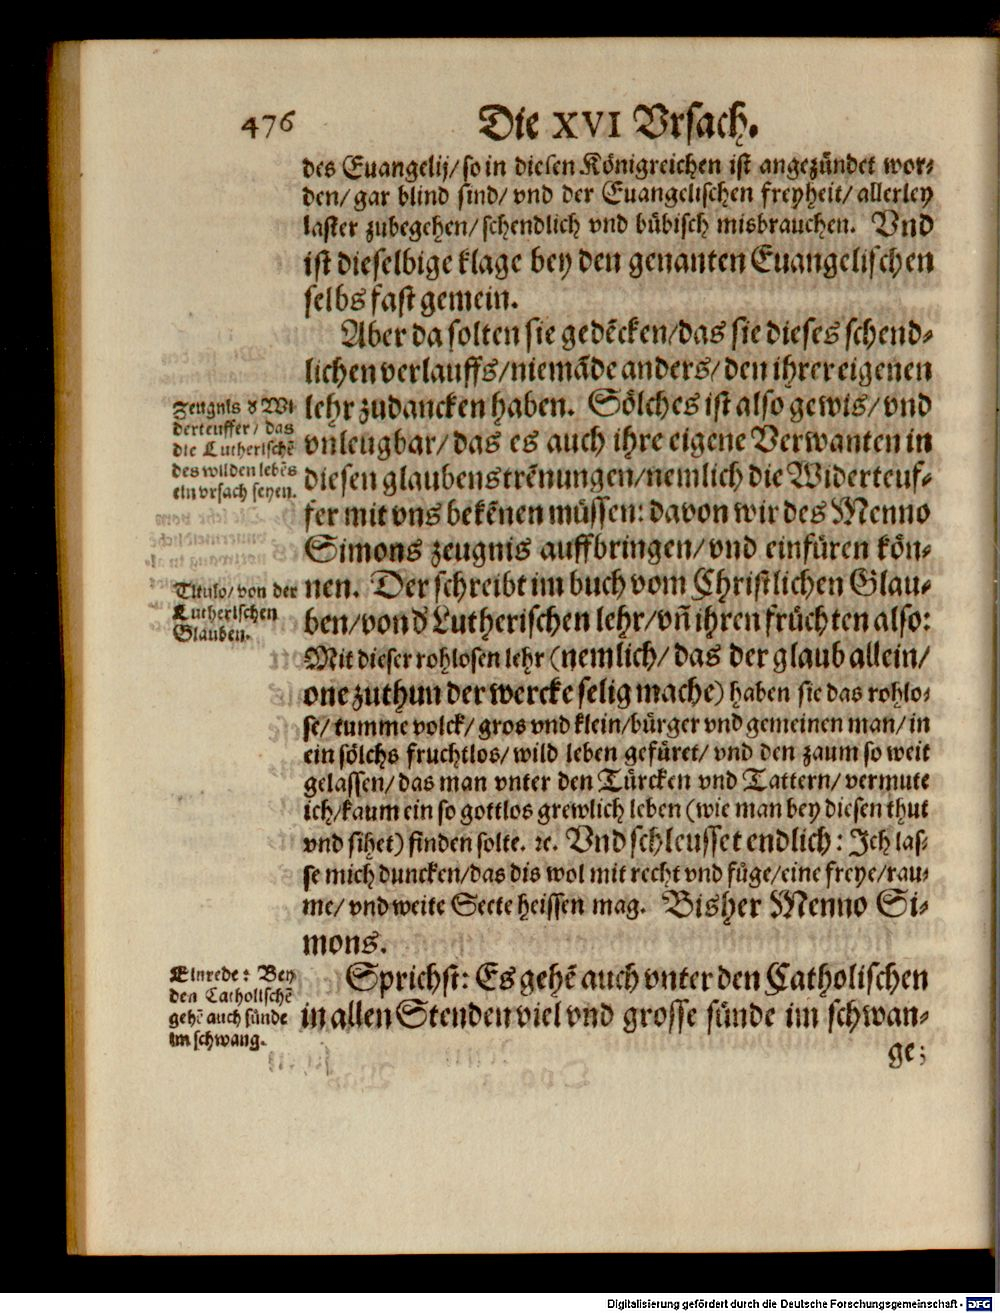 476
Die XVI Vrsach.
des Euangelij/ so in diesen Königreichen ist angezündet wor⸗
den/ gar blind sind/ vnd der Euangelischen freyheit/ allerley
laster zubegehen/ schendlich vnd bübisch misbrauchen. Vnd
ist dieselbige klage bey den genanten Euangelischen
selbs fast gemein.
Aber da solten sie gedẽcken/ das sie dieses schend⸗
lichen verlauffs/ niemãde anders/ den ihrer eigenen
lehr zudancken haben. Sölches ist also gewis/ vnd
vnleugbar/ das es auch ihre eigene Verwanten in
diesen glaubenstrẽnungen/ nemlich die Widerteuf⸗
fer mit vns bekẽnen müssen: davon wir des Menno
Simons zeugnis auffbringen/ vnd einfüren kön⸗
nen. Der schreibt im buch vom Christlichen Glau⸗
ben/ von d' Lutherischen lehr/ vñ ihren früchten also:
Mit dieser rohlosen lehr (nemlich/ das der glaub allein/
one zuthun der wercke selig mache) haben sie das rohlo⸗
se/ tumme volck/ gros vnd klein/ bürger vnd gemeinen man/ in
ein sölchs fruchtlos/ wild leben gefüret/ vnd den zaum so weit
gelassen/ das man vnter den Türcken vnd Tattern/ vermute
ich/ kaum ein so gottlos grewlich leben (wie man bey diesen thut
vnd sihet) finden solte. ꝛc. Vnd schleusset endlich: Ich las⸗
se mich duncken/ das dis wol mit recht vnd füge/ eine freye/ rau⸗
me/ vnd weite Secte heissen mag. Bisher Menno Si⸗
mons.
Sprichst: Es gehẽ auch vnter den Catholischen
in allen Stenden viel vnd grosse sünde im schwan⸗
ge;
Zeugnis d' Wi
derteuffer/ das
die Lutherischẽ
des wilden lebẽs
ein vrsach seyen.
Titulo/ von der
Lutherischen
Glauben.
Einrede: Bey
den Catholischẽ
gehẽ auch sünde
im schwang.
Digitalisierung gefördert durch die Deutsche Forschungsgemeinschaft - DFG